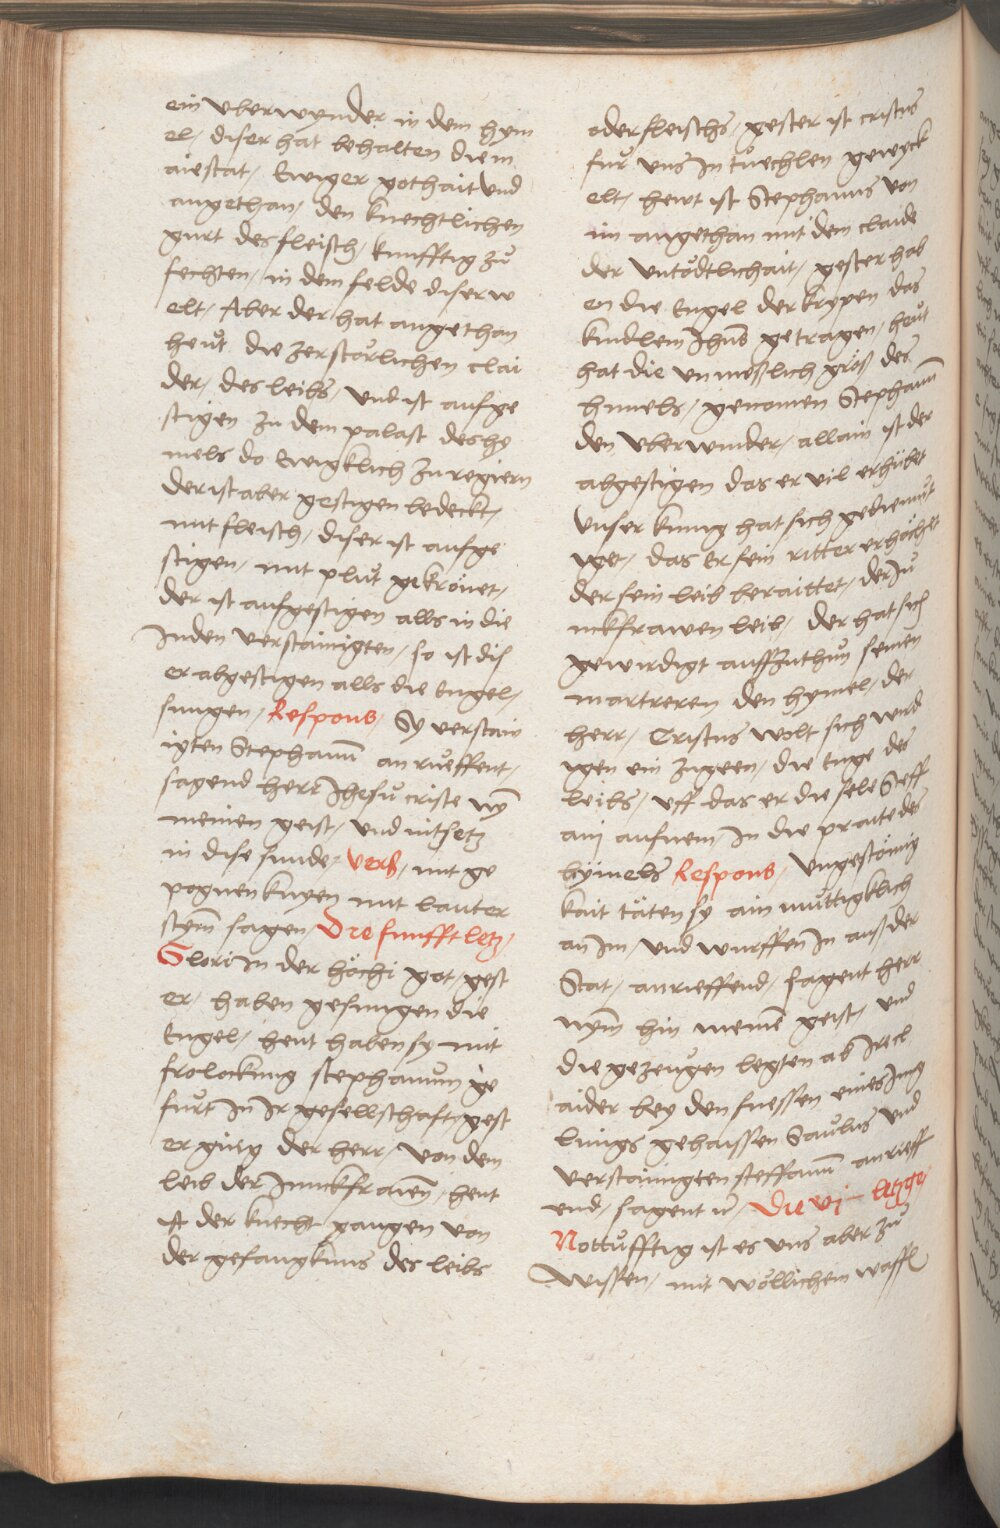 ein vberwynder in dem hym
el / diser hat behalten die m
aiestat / Ewiger gothait Vnd
angethan / den knechtlichen
gurt des fleisch / kunfftig zů
fechten / in dem felde diser w
elt / Aber der hat angethan
heůt die zerstorlichen clai
der / des leibs / vnd ist aufge
stigen zu dem palast des hy
mels do Ewigklich zu regiern
der ist aber gestigen bedeckt /
mit fleisch / diser ist aufge
stigen / mit plůt gekrönet /
der ist aufgestigen alls in die
Juden verstainigten / so ist dis
er abgestigen alls die Engel /
sungen / Respons / Sy verstain
igten Stephanū an rueffent /
sagend herr Jhesu criste nym̄
meinen geist / vnd nit setz
in dise sunde / vers / mit ge
pognen knyen mit lauter
stym̄ sagen / Die funfft letz /
Glori in der höchi got / gest
er / haben gesungen die
Engel / heut haben sy mit
frolockung stephanum ge
furt in Ir gesellschaft / gest
er gieng der herr / von dem
leib der Junckfrawen̄ / heut
ist der knecht gangen von
der gefangknus des leibs
oder fleischs / gester ist cristus
fur vns in tůechlen gewyck
elt / hewt ist Stephanus von
im angethan mit dem claide
der vntödtlichait / gester hab
en die Engel der krypen das
kindlein Jhūs getragen / heut
hat die vnmeßlich größ des
himels / genomen Stephanū
den vberwinder / allain ist der
abgestigen das er vil erhühet
Vnser kunig hat sich gediemůt
iget / das Er sein ritter erhöchet
der sein leib beraittet / der Ju
nckfrawen leib / der hat sich
gewirdigt auffzuthun seinen
martreren den hymel / der
herr / Cristus wolt sich wird
igen ein zugeen / die enge des
leibs / vff das er die sele Steff
anj aufnem / in die praite des
hÿmels Respons / Vngestömig
kait täten sy ain müttigklich
an im vnd wurffen in auß der
Stat / anrieffend / sagent herr
nym̄ hin meinē geist / vnd
die gezeugen legten ab Ire cl
aider bey den fuessen eines Jung
lings gehaissen Saulus vnd
verstainigten steffanū anrieff
end / sagent ut / Die vj letzge /
Nottůfftig ist es vns aber zů
wissen / mit wöllichem waffē